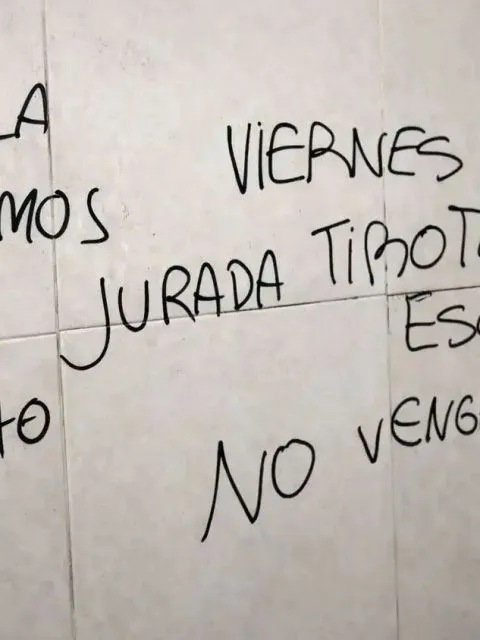 LA
VIERNES
MOS
JURADA TIROT
ES
NO VENG